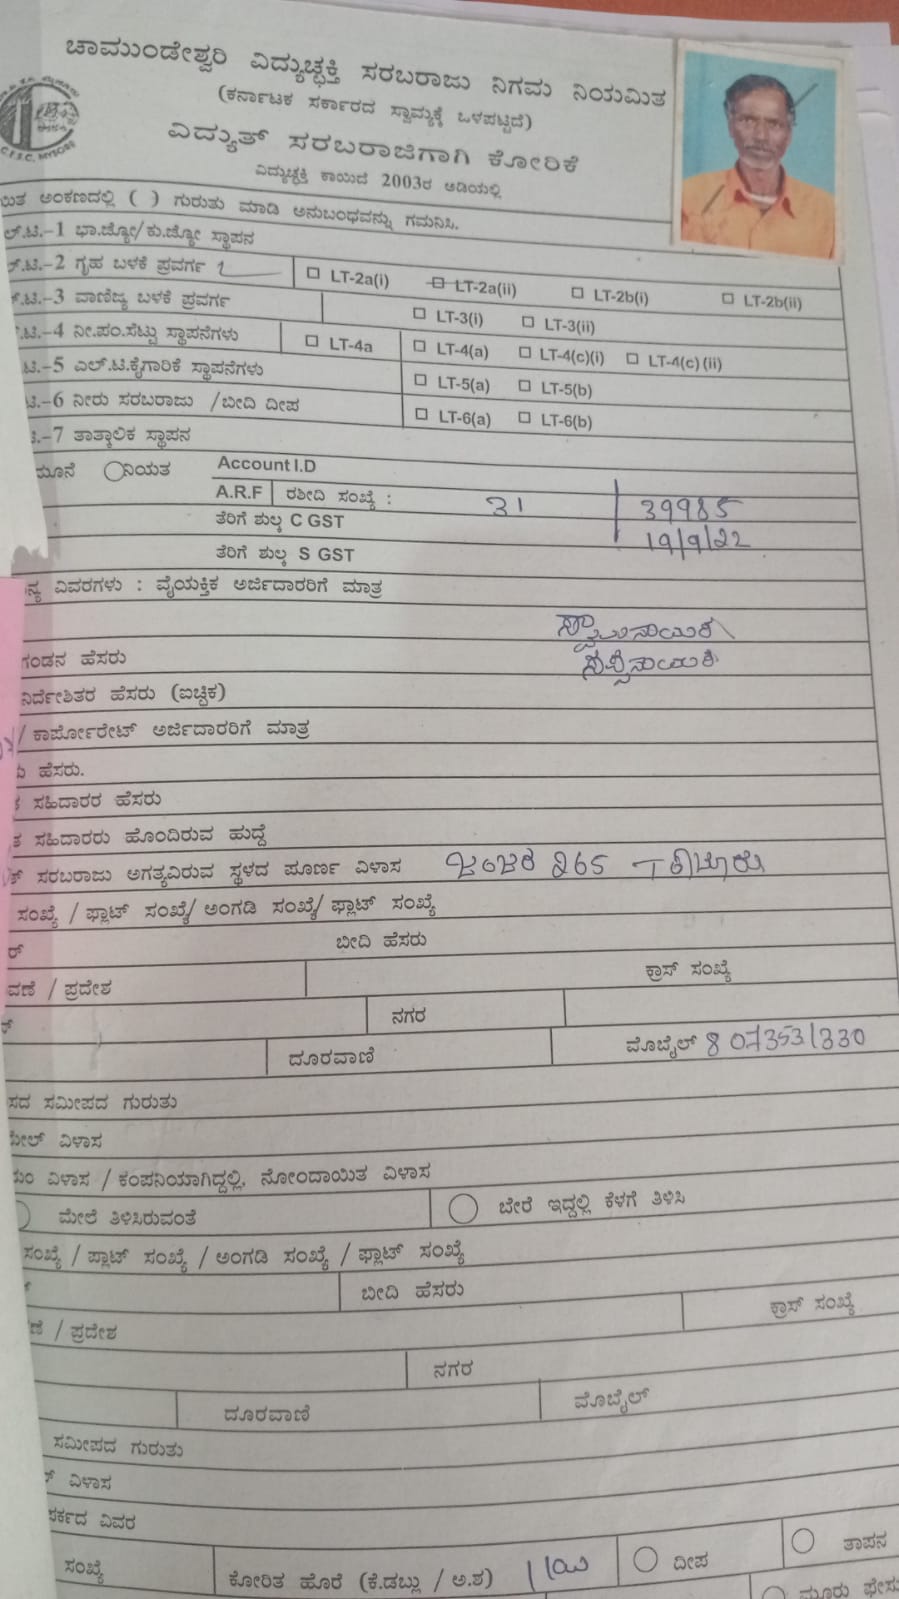 ಚಾಮುಂಡೇಶ್ವರಿ ವಿದ್ಯುಚ್ಛಕ್ತಿ ಸರಬರಾಜು ನಿಗಮ ನಿಯಮಿತ
(ಕರ್ನಾಟಕ ಸರ್ಕಾರದ ಸ್ವಾಮ್ಯಕ್ಕೆ ಒಳಪಟ್ಟಿದೆ)
C.E.S.C, MYSORE
ವಿದ್ಯುತ್ ಸರಬರಾಜಿಗಾಗಿ ಕೋರಿಕೆ
ವಿದ್ಯುಚ್ಛಕ್ತಿ ಕಾಯಿದೆ 2003ರ ಅಡಿಯಲ್ಲಿ
ಅಂಕಣದಲ್ಲಿ ( ) ಗುರುತು ಮಾಡಿ ಅನುಬಂಧವನ್ನು ಗಮನಿಸಿ.
ಲ್.ಟಿ.-1 ಭಾ.ಜ್ಯೋ/ಕು.ಜ್ಯೋ ಸ್ಥಾಪನ
ಲ್.ಟಿ.-2 ಗೃಹ ಬಳಕೆ ಪ್ರವರ್ಗ LT-2a(i) LT-2a(ii) LT-2b(i) LT-2b(ii)
.ಟಿ.-3 ವಾಣಿಜ್ಯ ಬಳಕೆ ಪ್ರವರ್ಗ LT-3(i) LT-3(ii)
.ಟಿ.-4 ನೀ.ಪಂ.ಸೆಟ್ಟು ಸ್ಥಾಪನೆಗಳು LT-4a LT-4(a) LT-4(c)(i) LT-4(c)(ii)
ಟಿ.-5 ಎಲ್.ಟಿ.ಕೈಗಾರಿಕೆ ಸ್ಥಾಪನೆಗಳು LT-5(a) LT-5(b)
ಟಿ.-6 ನೀರು ಸರಬರಾಜು /ಬೀದಿ ದೀಪ LT-6(a) LT-6(b)
ಟಿ.-7 ತಾತ್ಕಾಲಿಕ ಸ್ಥಾಪನ
ಮೂನೆ ನಿಯತ Account I.D
A.R.F ರಶೀದಿ ಸಂಖ್ಯೆ : 31 39985
ತೆರಿಗೆ ಶುಲ್ಕ C GST 19/9/22
ತೆರಿಗೆ ಶುಲ್ಕ S GST
ನ್ಯ ವಿವರಗಳು : ವೈಯಕ್ತಿಕ ಅರ್ಜಿದಾರರಿಗೆ ಮಾತ್ರ
ಗಂಡನ ಹೆಸರು
ನಿರ್ದೇಶಿತರ ಹೆಸರು (ಐಚ್ಛಿಕ)
/ ಕಾರ್ಪೋರೇಟ್ ಅರ್ಜಿದಾರರಿಗೆ ಮಾತ್ರ
ಹೆಸರು.
ಸಹಿದಾರರ ಹೆಸರು
ತ ಸಹಿದಾರರು ಹೊಂದಿರುವ ಹುದ್ದೆ
ಸರಬರಾಜು ಅಗತ್ಯವಿರುವ ಸ್ಥಳದ ಪೂರ್ಣ ವಿಳಾಸ
ಸಂಖ್ಯೆ / ಫ್ಲಾಟ್ ಸಂಖ್ಯೆ/ ಅಂಗಡಿ ಸಂಖ್ಯೆ/ ಫ್ಲಾಟ್ ಸಂಖ್ಯೆ
ರ್ ಬೀದಿ ಹೆಸರು
ವಣೆ / ಪ್ರದೇಶ ಕ್ರಾಸ್ ಸಂಖ್ಯೆ
ನಗರ
ದೂರವಾಣಿ ಮೊಬೈಲ್ 8073531330
ಸದ ಸಮೀಪದ ಗುರುತು
ಮೇಲ್ ವಿಳಾಸ
ವಿಳಾಸ / ಕಂಪನಿಯಾಗಿದ್ದಲ್ಲಿ, ನೋಂದಾಯಿತ ವಿಳಾಸ
ಮೇಲೆ ತಿಳಿಸಿರುವಂತೆ ಬೇರೆ ಇದ್ದಲ್ಲಿ ಕೆಳಗೆ ತಿಳಿಸಿ
ಸಂಖ್ಯೆ / ಪ್ಲಾಟ್ ಸಂಖ್ಯೆ / ಅಂಗಡಿ ಸಂಖ್ಯೆ / ಫ್ಲಾಟ್ ಸಂಖ್ಯೆ
ಬೀದಿ ಹೆಸರು
ಣೆ / ಪ್ರದೇಶ ಕ್ರಾಸ್ ಸಂಖ್ಯೆ
ನಗರ
ದೂರವಾಣಿ ಮೊಬೈಲ್
ಸಮೀಪದ ಗುರುತು
ವಿಳಾಸ
ಪರ್ಕದ ವಿವರ
ಸಂಖ್ಯೆ ಕೋರಿತ ಹೊರೆ (ಕೆ.ಡಬ್ಲು / ಅ.ಶ) ದೀಪ ತಾಪನ
ಮೂರು ಫೇಸು